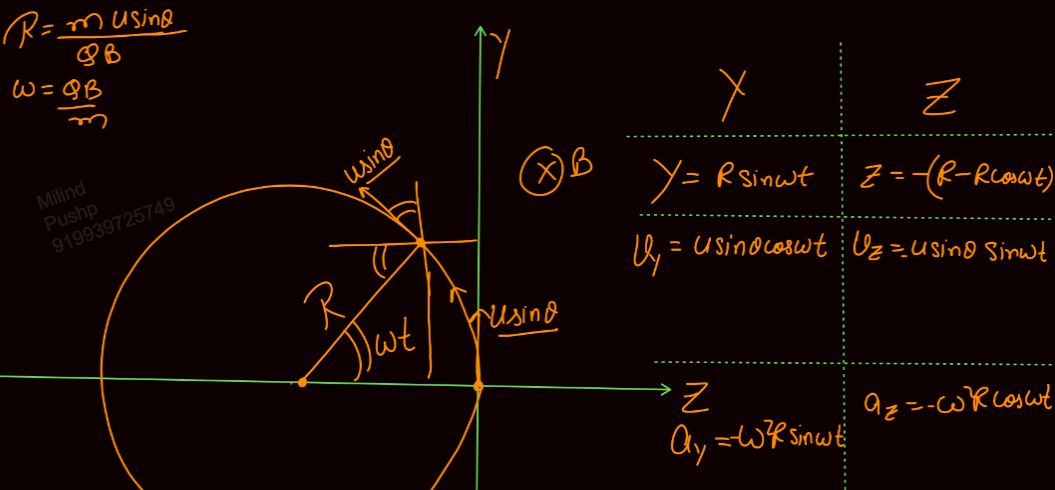 R = m u sinθ / QB
ω = QB / m
Milind
Pushp
919939725749
usinθ
R
ωt
usinθ
Y
⊗ B
Z
Y Z
Y = R sinωt Z = -(R - Rcosωt)
Vy = usinθcosωt Vz = -usinθ sinωt
ay = -ω²R sinωt az = -ω²R cosωt